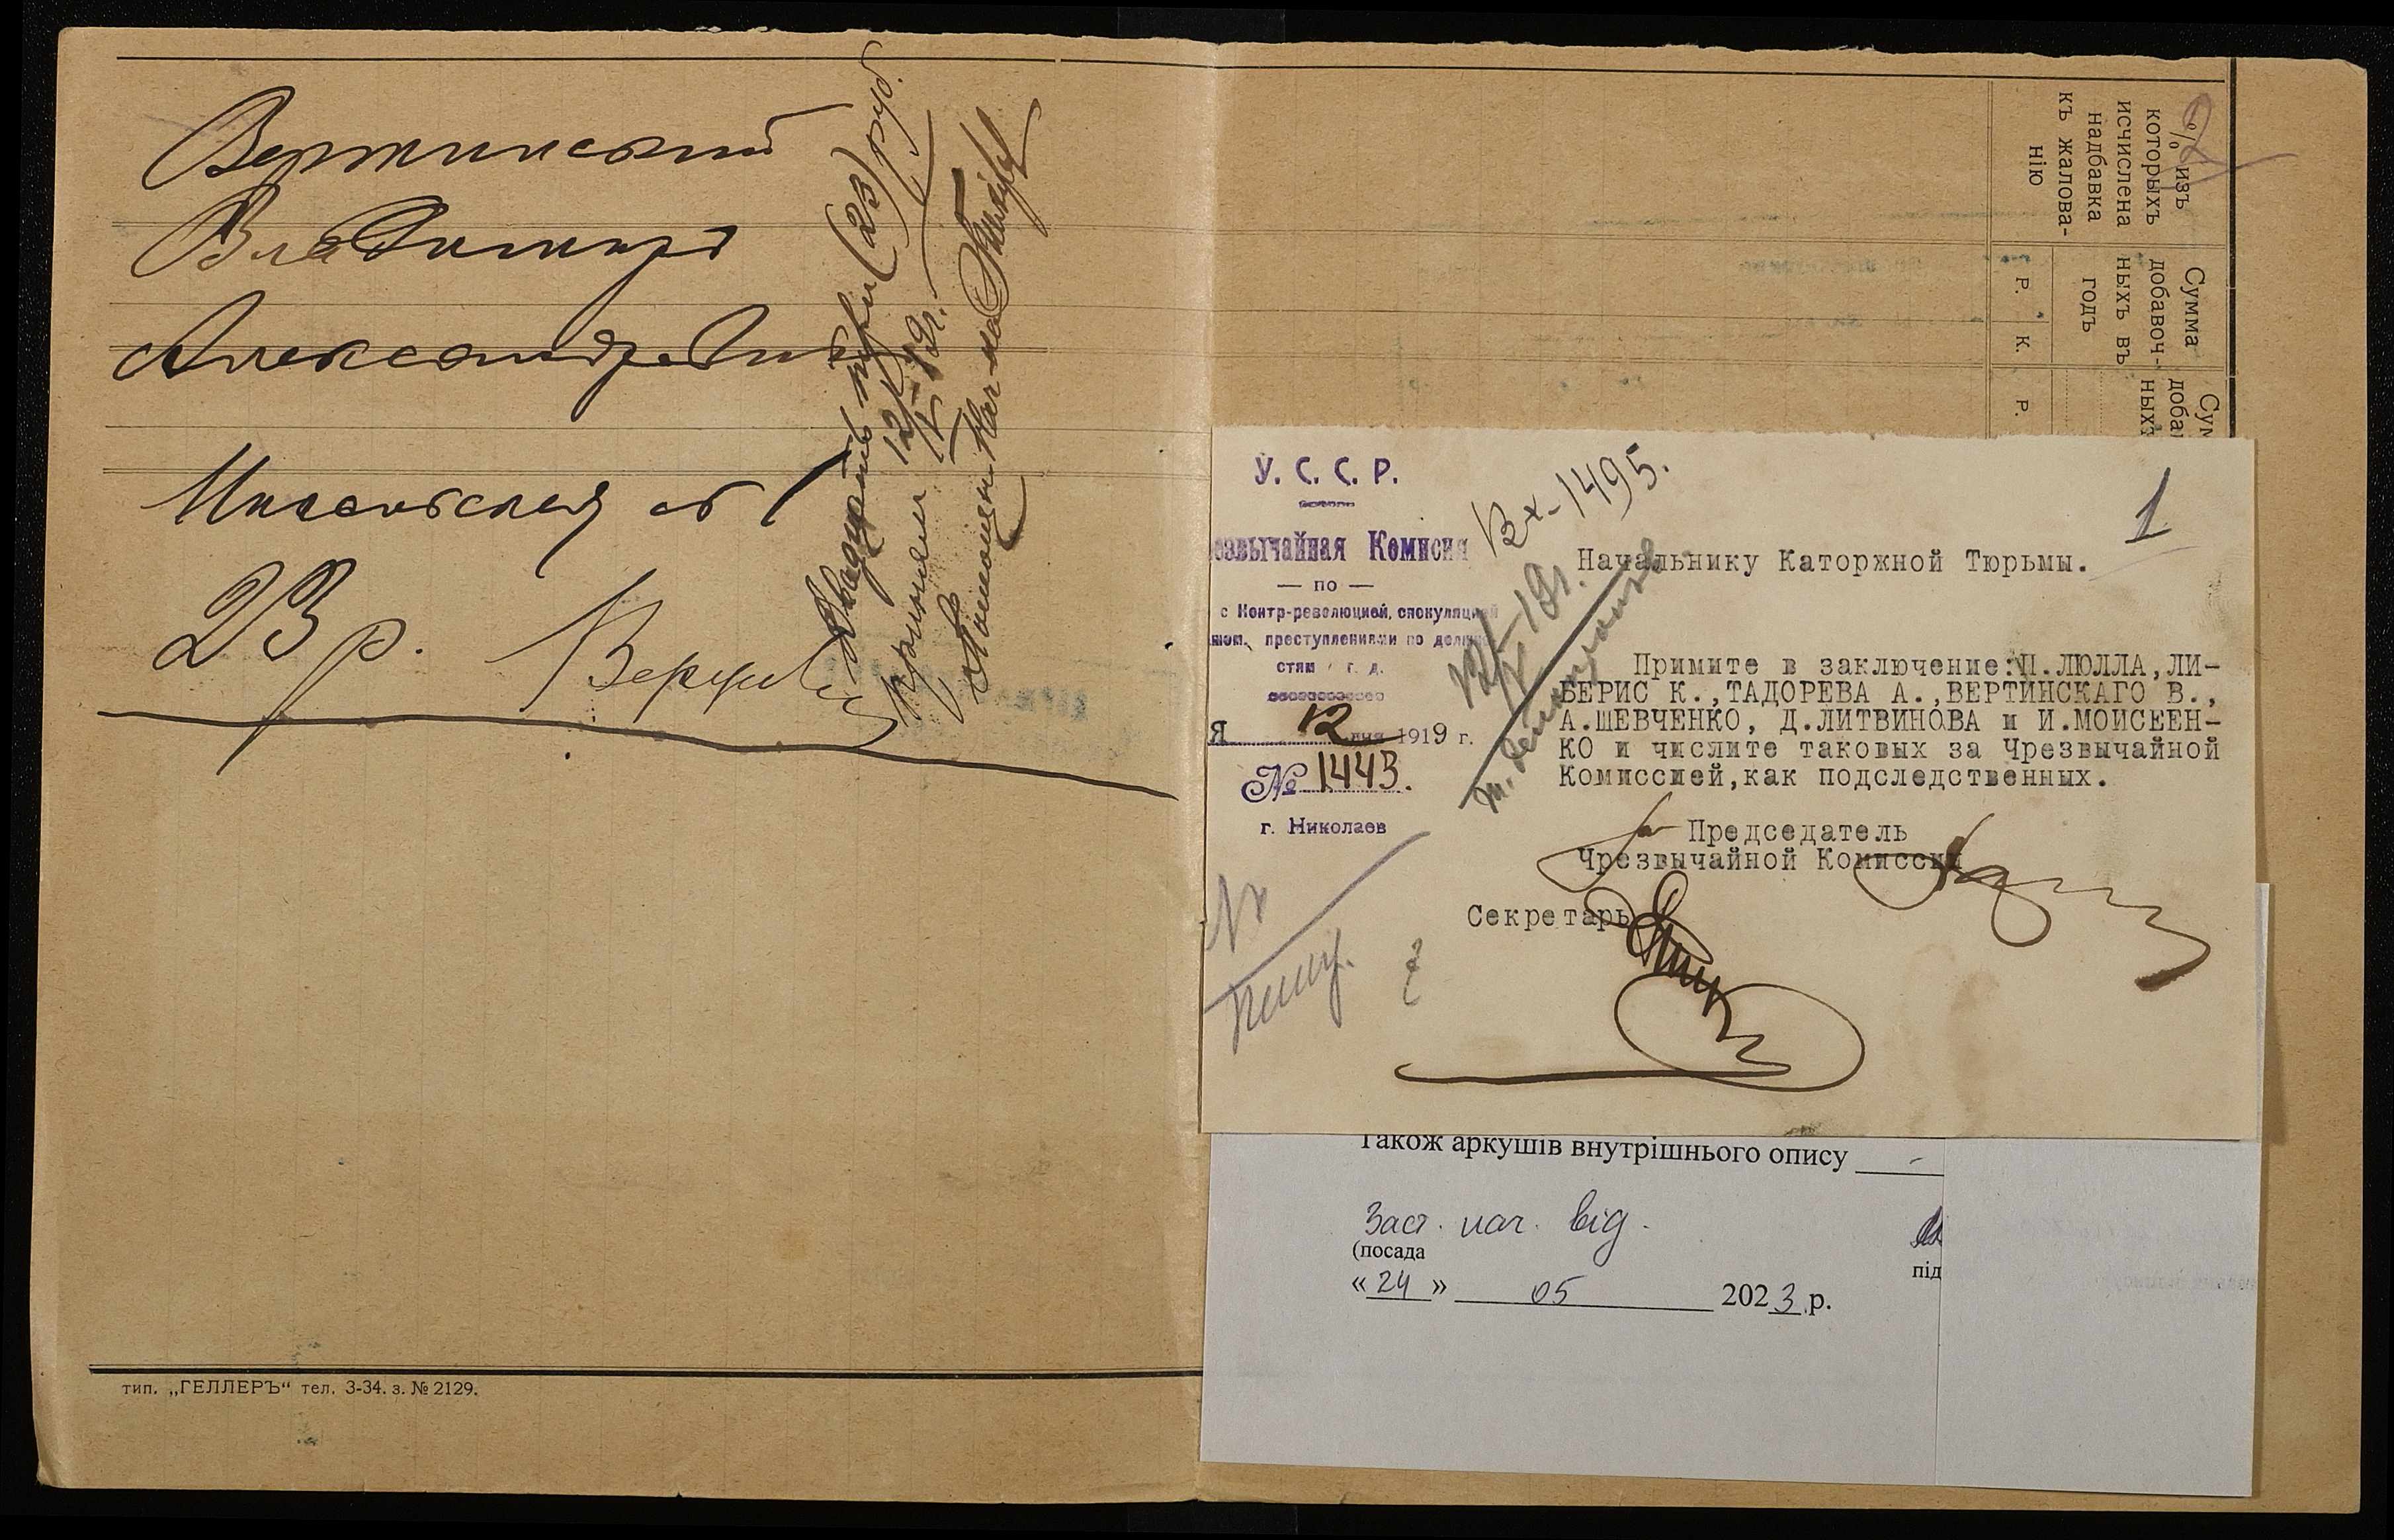 Вертинский
Владимиръ
Александровичъ
23 р.
Двадцать три (23) руб.
принялъ 12/V-19г.
тип. „ГЕЛЛЕРЪ“ тел. 3-34. з. № 2129.
2
% изъ
которыхъ
исчислена
надбавка
къ жалова-
нію
Сумма
добавоч-
ныхъ въ
годъ
Р.
К.
Сум
доба
ныхъ
Р.
У. С. С. Р.
езвычайная Комисия
— по —
с Контр-революцией, спекуляцией
преступлениями по долж
стям г. д.
12 дня 1919 г.
№ 1443.
г. Николаев
Вх-1495.
12/V-19г.
1
Начальнику Каторжной Тюрьмы.
Примите в заключение:П.ЛЮЛЛА,ЛИ-
БЕРИС К.,ТАДОРЕВА А.,ВЕРТИНСКАГО В.,
А.ШЕВЧЕНКО, Д.ЛИТВИНОВА и И.МОИСЕЕН-
КО и числите таковых за Чрезвычайной
Комиссией,как подследственных.
Председатель
Чрезвычайной Комиссии
Секретарь
Також аркушів внутрішнього опису -
Заст. нач. від.
(посада
під
« 24 » 05 2023 р.